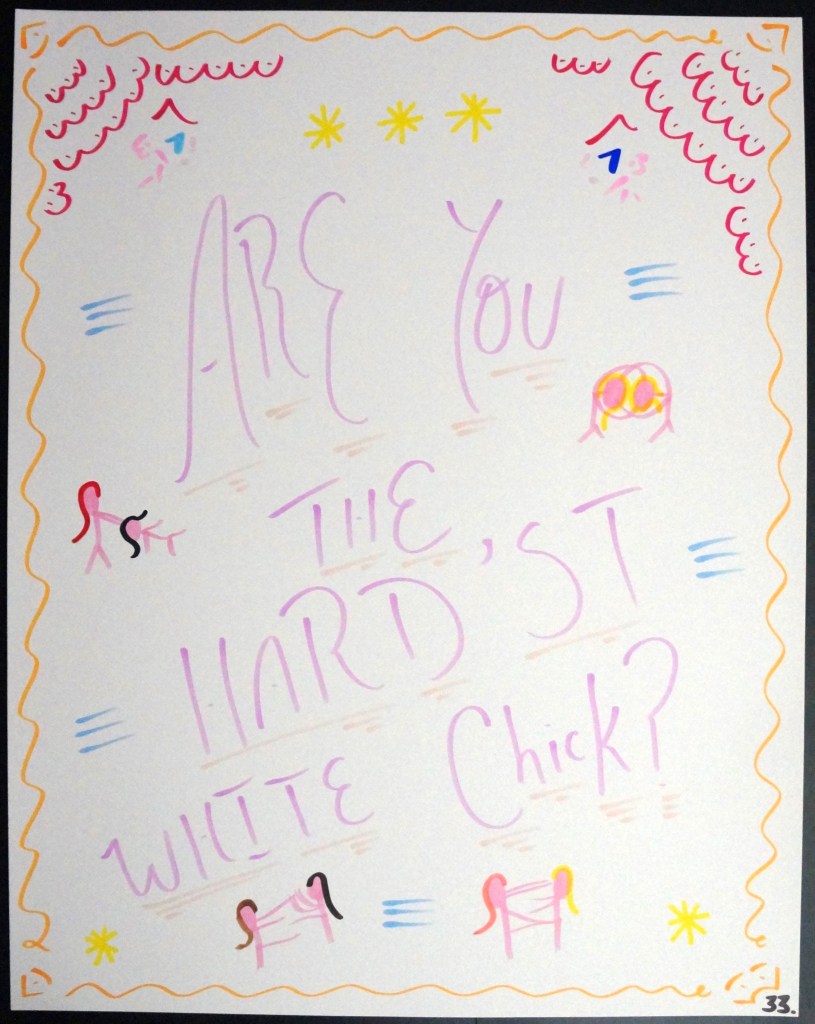 ARE YOU
THE
HARD'ST
WHITE Chick?
33.